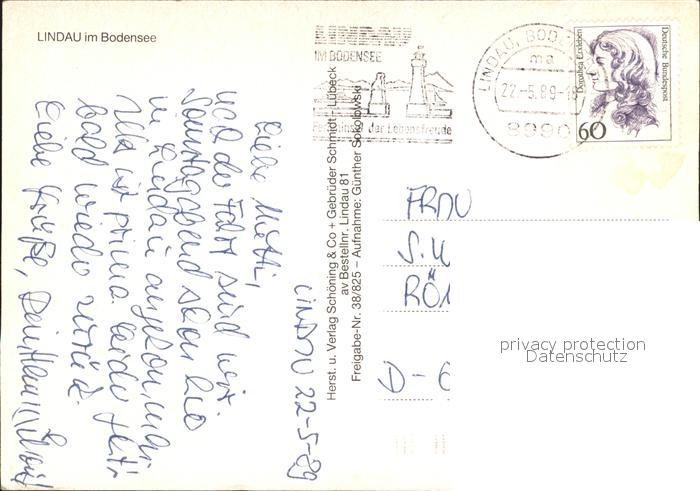 LINDAU im Bodensee
IM BODENSEE
der Lebensfreude
LINDAU, BODEN
ma
22.-5.89-18
8990
Dorothea Erxleben
Deutsche Bundespost
60
LINDAU 22-5-89
Liebe Mutti,
nach der Fahrt sind wir
Sonntagabend schon hie
in Lindau angekommen
Alles ist prima leider geht's
bald wieder zurück.
Liebe Grüße,
Herst. u. Verlag Schöning & Co + Gebrüder Schmidt - Lübeck
av Bestellnr. Lindau 81
Freigabe-Nr. 38/825 – Aufnahme: Günther Sokolowski
FRAU
S.
RÖ
D-6
privacy protection
Datenschutz